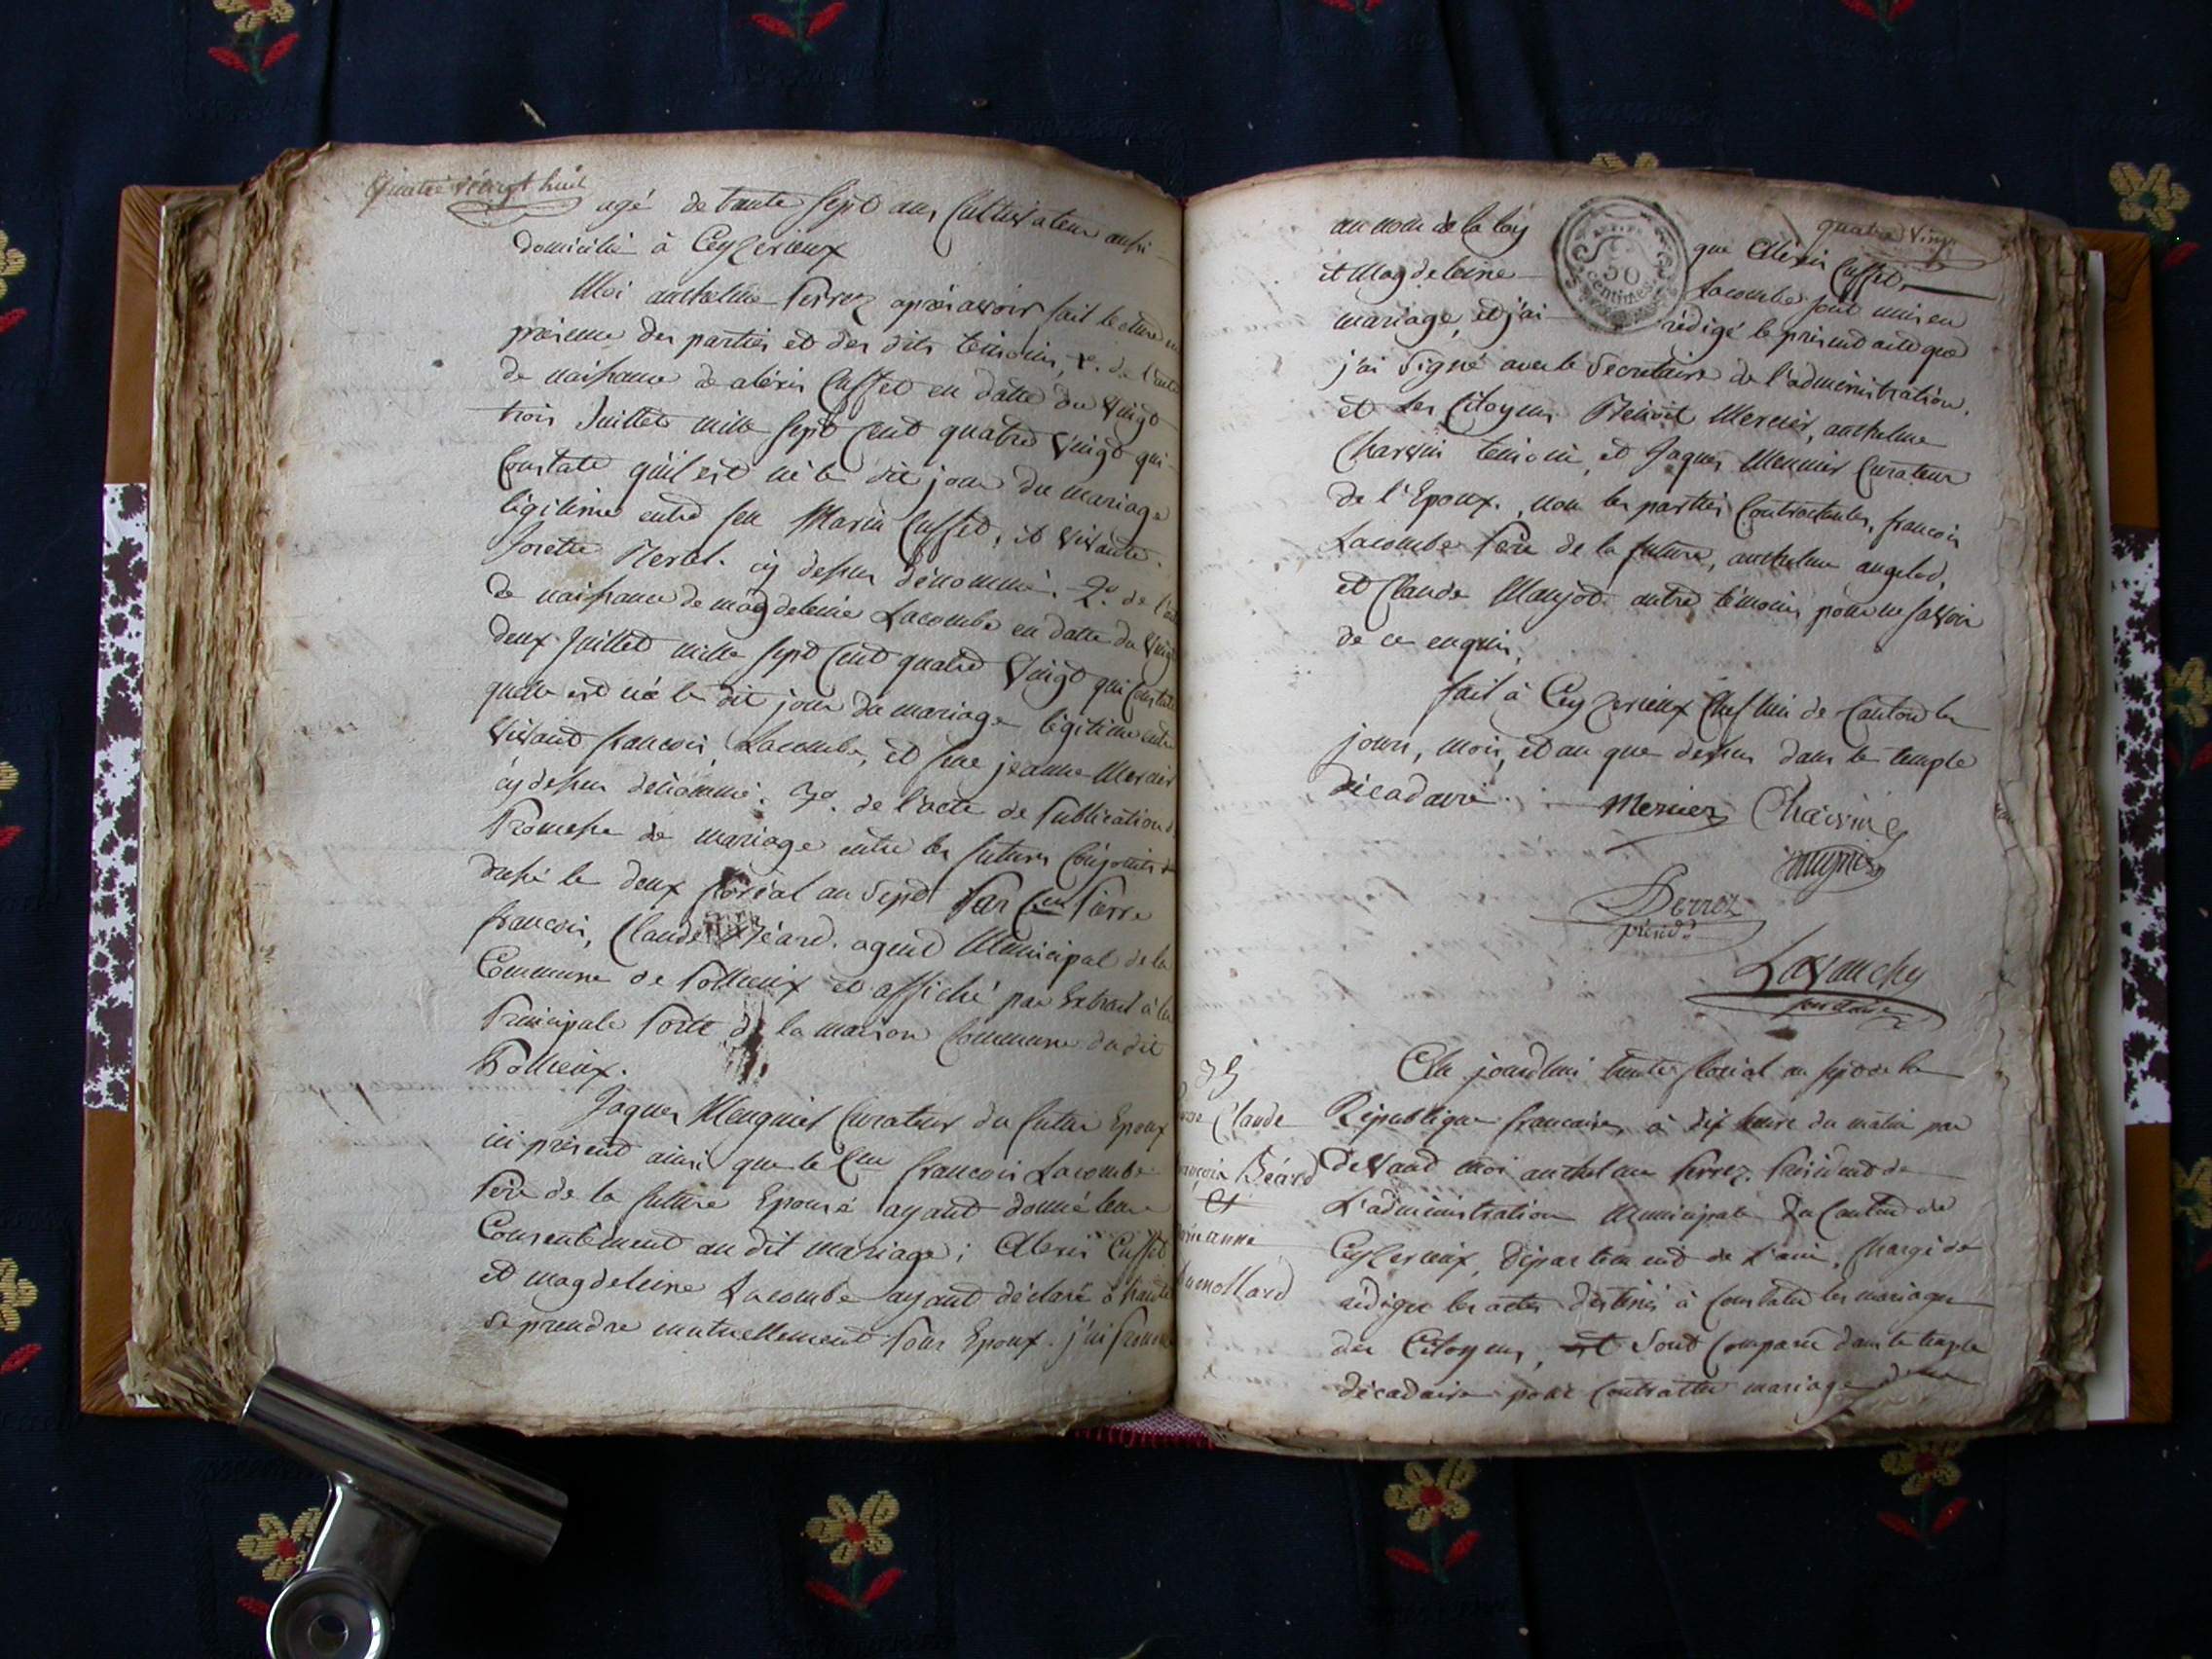 quatre vingt huit
agé de trente sept ans, Cultivateur aussi
domicilié à Ceyzerieux
Moi anthelme Perrez après avoir fait lecture en
présence des parties et des dits témoins, 1º. de l'acte
de naissance de aléxis Cusset en datte du vingt
trois Juillet mille sept cent quatre vingt qui
Constate qu'il est né le dit jour du mariage
légitime entre feu Marin Cusset, et vivante
cy dessus dénommé. 2º. de l'acte
de naissance de magdeleine Lacombe en datte du vingt
deux Juillet mille sept cent quatre vingt qui Constate
quelle est née le dit jour du mariage légitime entre
vivant francois Lacombe, et feue jeanne Mercier
cy dessus dénommé. 3º. de l'acte de Publication de
Promesse de mariage entre les futurs Conjoints
dressé le deux floréal an Sept Par Cen Pierre
francois, Claude Béard. agent Municipal de la
Commune de Pollieux et affiché par Extrait à la
Principale Porte de la maison Commune du dit
Pollieux.
Jaques Meugnier Curateur du futur Epoux
ici présent ainsi que le Cen francois Lacombe
Père de la future Epouse ayant donné leur
Consentement au dit mariage; Alexis Cusset
et magdeleine Lacombe ayant déclaré à haute
se prendre mutuellement Pour Epoux. j'ai Prononcé
quatre vingt
au nom de la loy que Aléxis Cusset,
et Magdeleine Lacombe sont unis en
mariage, et j'ai rédigé le présent acte que
50
Centimes
j'ai Signé avec le Secretaire de l'administration.
et Les Citoyens Benoit Mercier, anthelme
Charvin témoin, et Jaques Meunier Curateur
de l'Epoux. non les parties Contractantes, francois
Lacombe Père de la future, anthelme angelod,
et Claude Manjot autre témoins pour ne savoir
de ce enquis,
fait à Ceyzerieux Chef lieu de Canton les
jour, mois, et an que dessus dans le temple
décadaire.
Mercier Charvin
mugnier
Perrez
présidt
Lavanchy
secrétaire
35
Pierre Claude
françois Béard
et
marie anne
Dumollard
Ce jourdhui trente floréal an sept de la
République francaise, à dix heure du matin par
devand moi anthelme Perrez. Président de
L'administration Municipale du Canton de
Ceyzerieux, Département de L'ain, Chargé de
rédiger les actes destinés à Constater les mariages
des Citoyens, et sont Comparus dans le temple
décadaire pour Contracter mariage